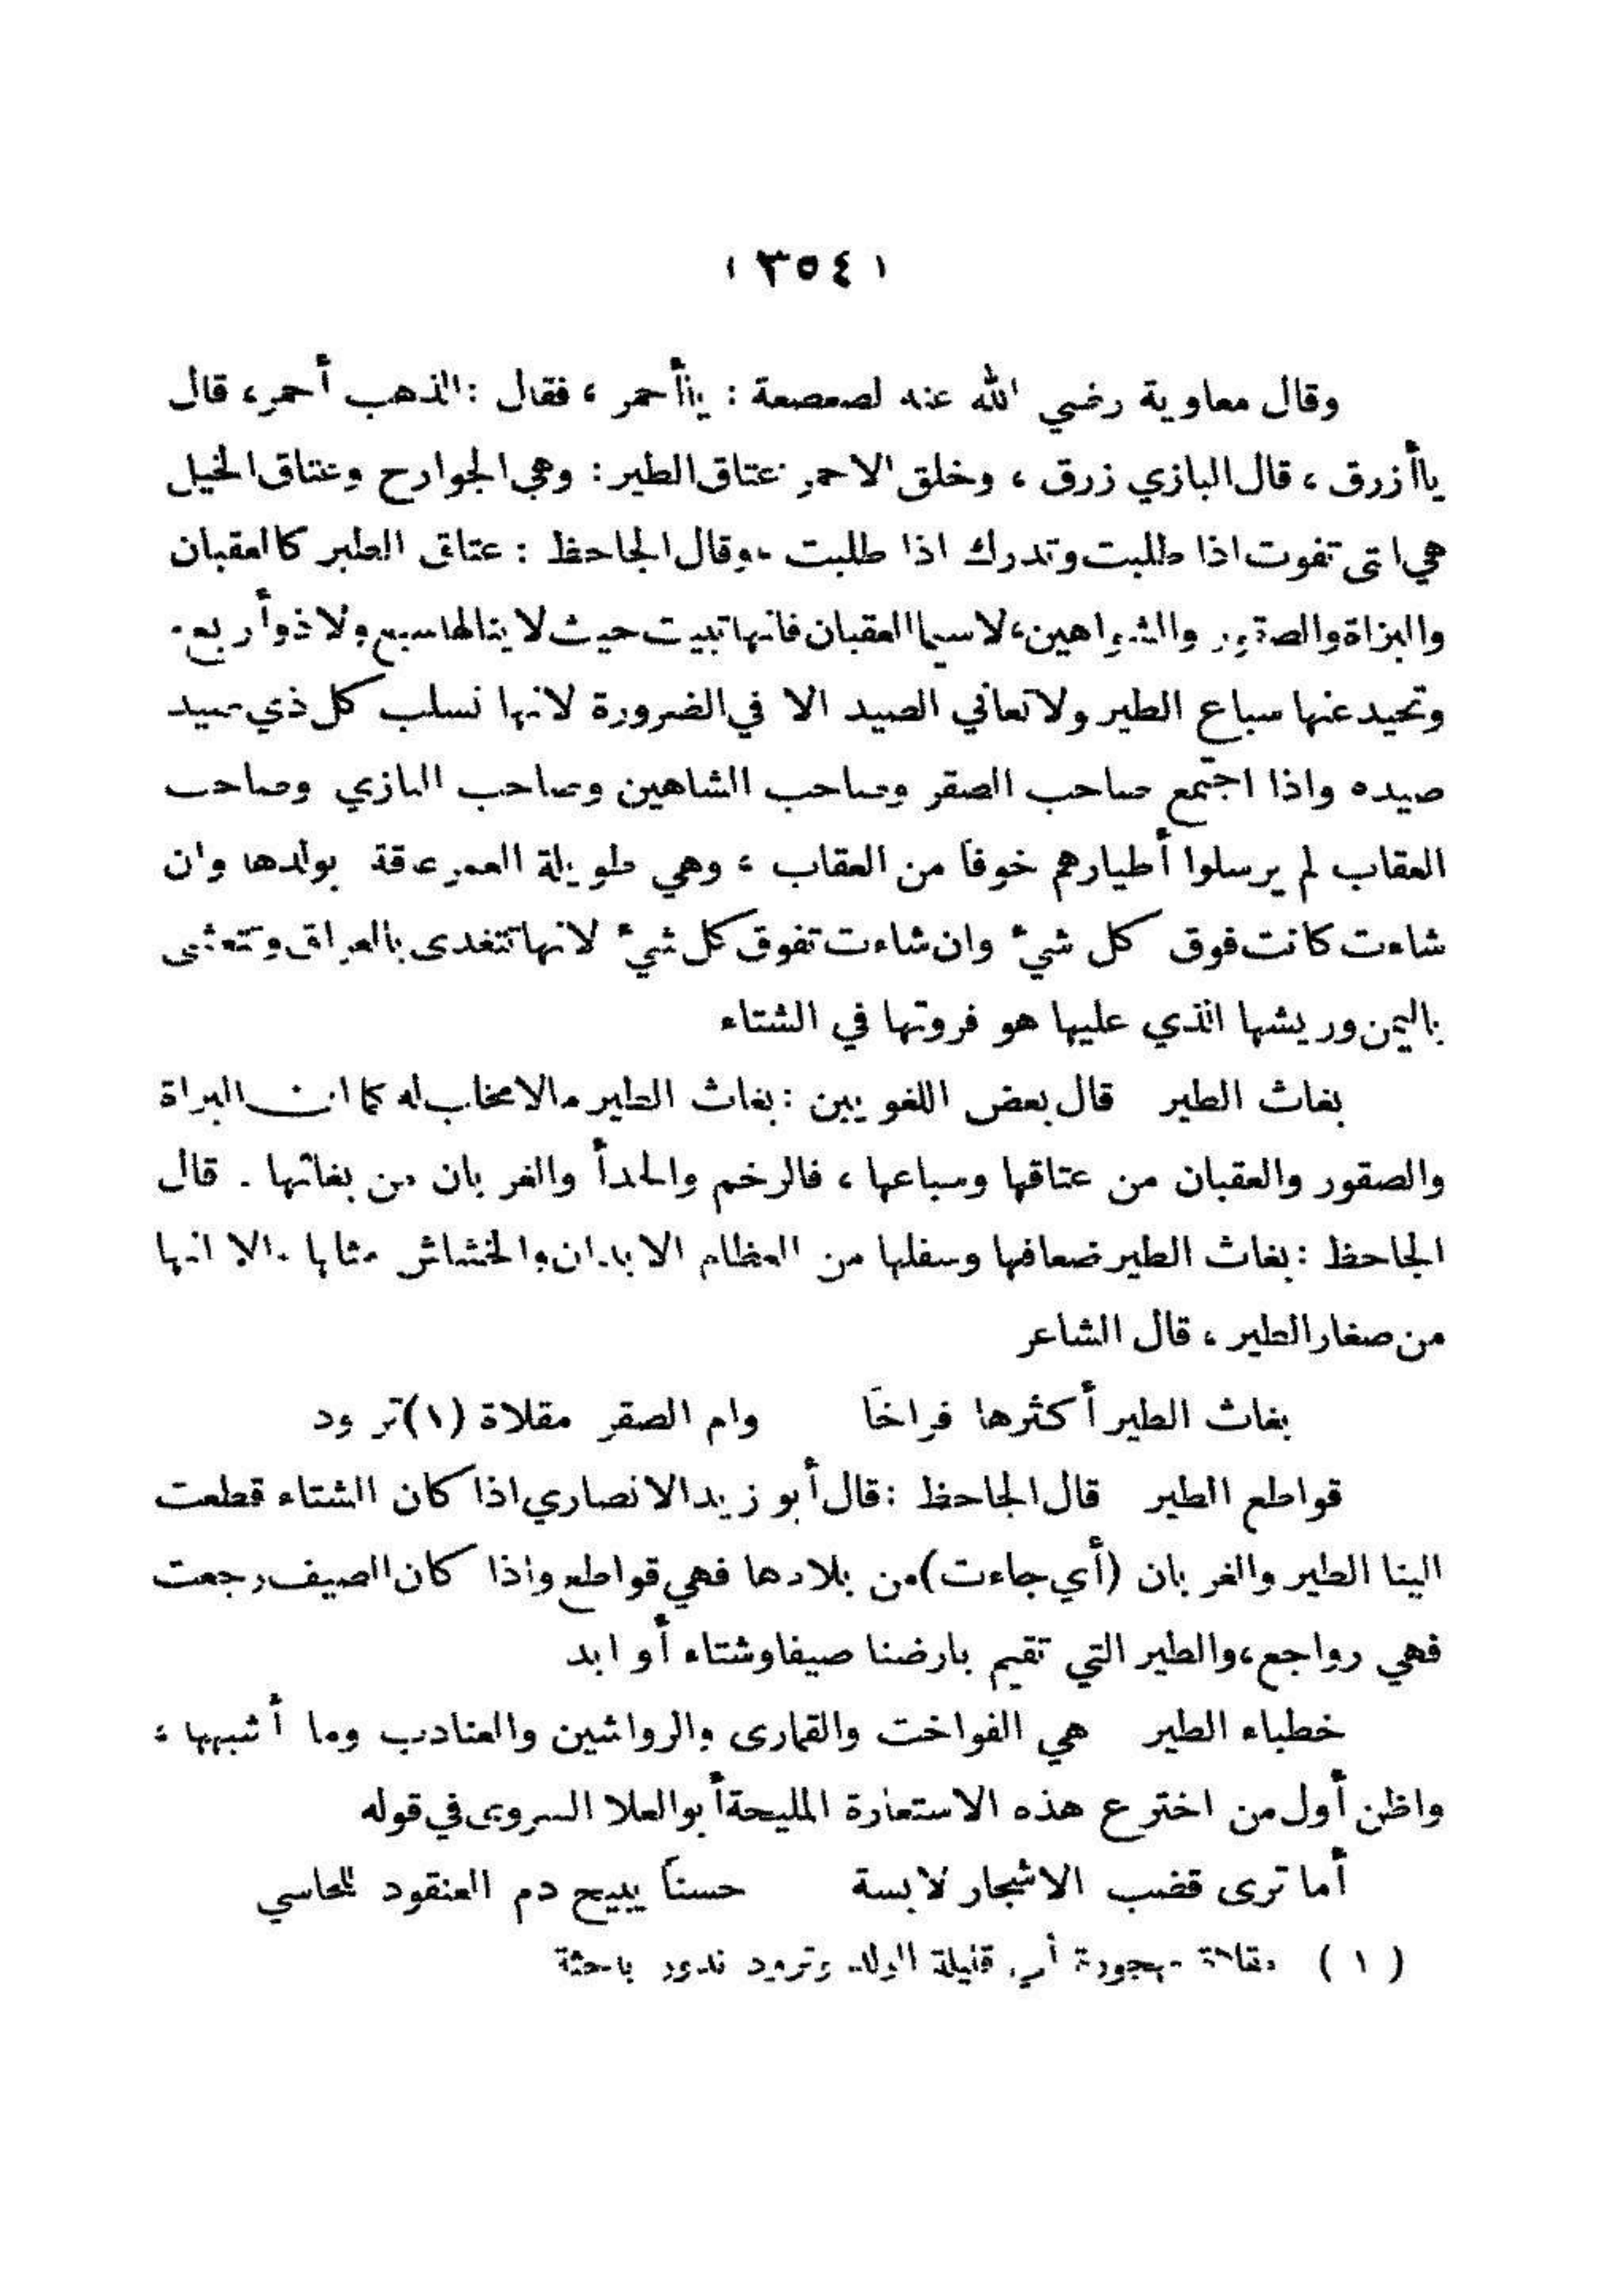 ( ٣٥٤ )
وقال معاوية رضي الله عنه لصعصعة : ياأحمر ، فقال : الذهب أحمر، قال
ياأزرق ، قال البازي زرق ، وخلق الاحمر عتاق الطير : وهي الجوارح وعتاق الخيل
هي التي تفوت اذا طلبت وتدرك اذا طلبت ، وقال الجاحظ : عتاق الطير كالعقبان
والبزاة والصقور والشواهين، لاسيما العقبان فانها تبيت حيث لا ينالها سبع ولا ذوأربع .
وتحيد عنها سباع الطير ولا تعاني الصيد الا في الضرورة لانها تسلب كل ذي صيد
صيده واذا اجتمع صاحب الصقر وصاحب الشاهين وصاحب البازي وصاحب
العقاب لم يرسلوا أطيارهم خوفاً من العقاب ، وهي طويلة العمر عاقة بولدها وان
شاءت كانت فوق كل شيء وان شاءت تفوق كل شيء لانها تتغدى بالعراق وتتعشى
باليمن وريشها الذي عليها هو فروتها في الشتاء
بغاث الطير قال بعض اللغويين : بغاث الطير مالا مخاب له كما ان البزاة
والصقور والعقبان من عتاقها وسباعها ، فالرخم والحدأ والغربان من بغاثها . قال
الجاحظ : بغاث الطير ضعافها وسفلها من العظام الابدان والخشاش مثلها الا انها
من صغار الطير ، قال الشاعر
بغاث الطير أكثرها فراخاً وام الصقر مقلاة (١) ترود
قواطع الطير قال الجاحظ : قال أبو زيد الانصاري اذا كان الشتاء قطعت
الينا الطير والغربان (أي جاءت) من بلادها فهي قواطع واذا كان الصيف رجعت
فهي رواجع، والطير التي تقيم بارضنا صيفا وشتاء أوابد
خطباء الطير هي الفواخت والقمارى والرواشين والعنادب وما أشبهها ،
واظن أول من اخترع هذه الاستعارة المليحة أبو العلا السروى في قوله
أما ترى قضب الاشجار لابسة حسناً يبيح دم العنقود للحاسي
( ١ ) مقلاة مهجورة أي قليلة الولد وترود تدور باحثة